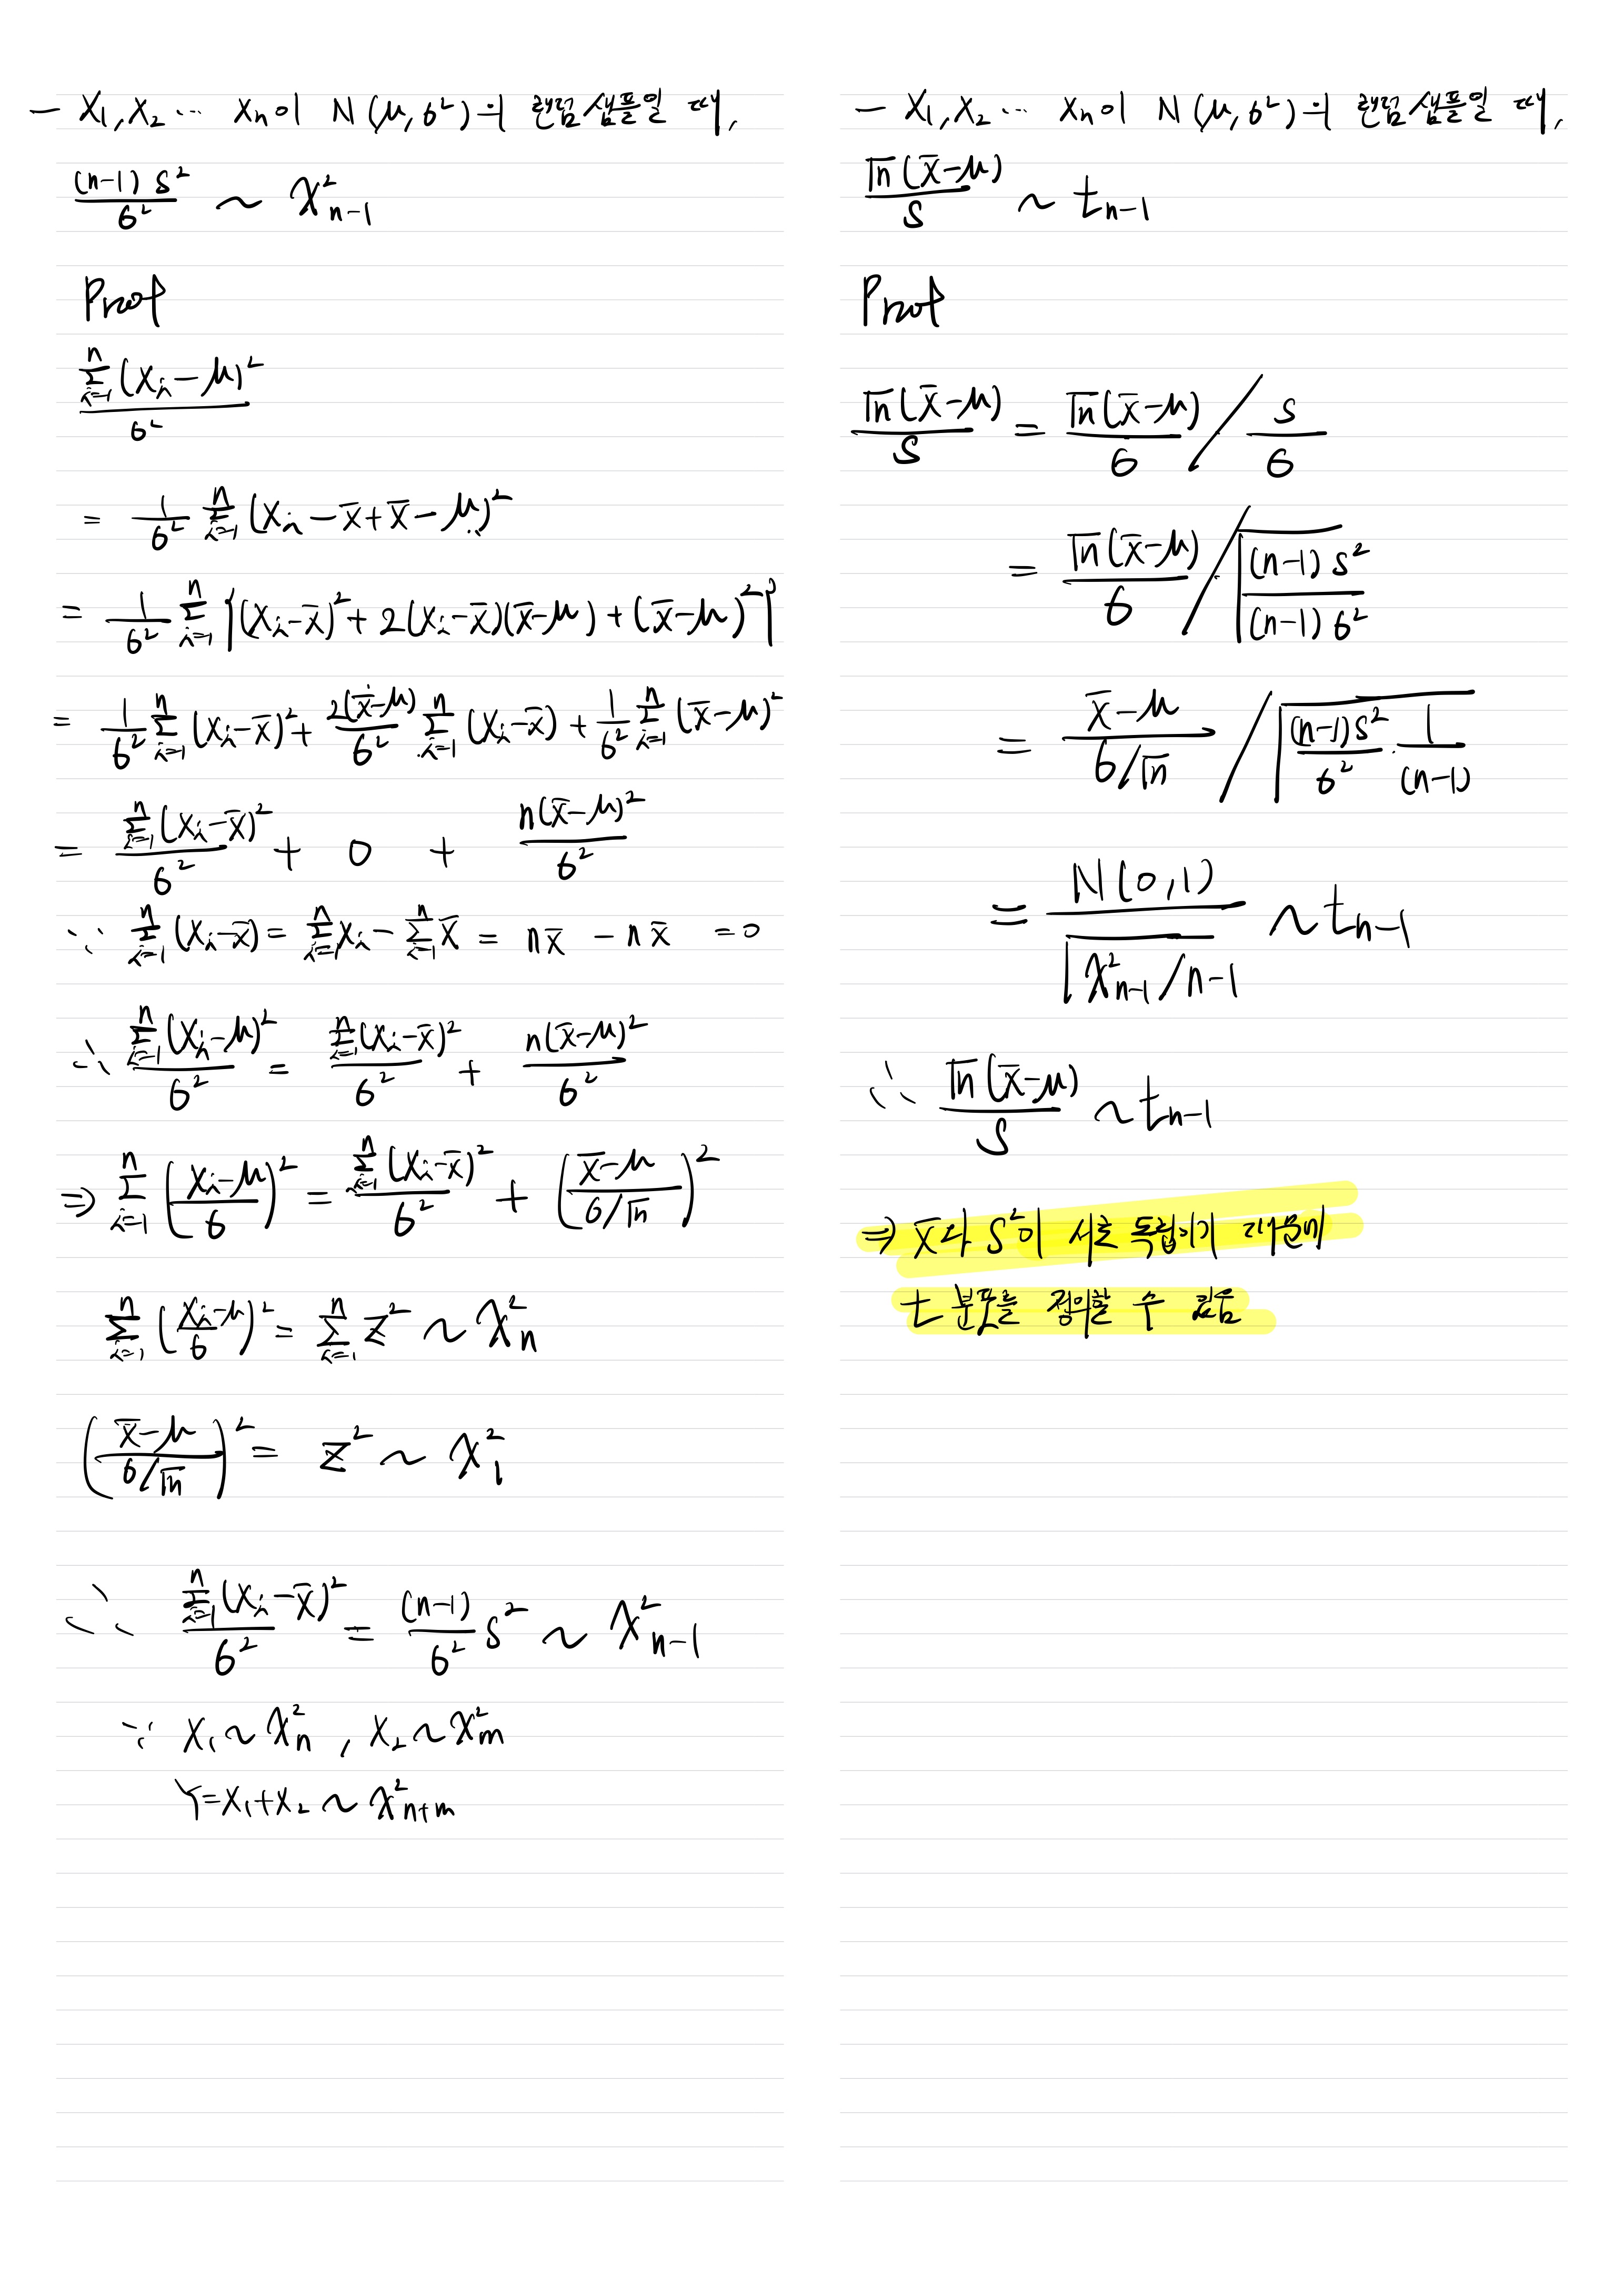 - X₁, X₂ ⋯ Xₙ이 N(μ, σ²)의 랜덤샘플일 때,
(n-1)S²/σ² ~ χ²ₙ₋₁
Proof
Σⁿᵢ₌₁(Xᵢ-μ)²/σ²
= 1/σ² Σⁿᵢ₌₁(Xᵢ-X̄+X̄-μ)²
= 1/σ² Σⁿᵢ₌₁{(Xᵢ-X̄)²+2(Xᵢ-X̄)(X̄-μ)+(X̄-μ)²}
= 1/σ² Σⁿᵢ₌₁(Xᵢ-X̄)² + 2(X̄-μ)/σ² Σⁿᵢ₌₁(Xᵢ-X̄) + 1/σ² Σⁿᵢ₌₁(X̄-μ)²
= Σⁿᵢ₌₁(Xᵢ-X̄)²/σ² + 0 + n(X̄-μ)²/σ²
∵ Σⁿᵢ₌₁(Xᵢ-X̄) = Σⁿᵢ₌₁Xᵢ - Σⁿᵢ₌₁X̄ = nX̄ - nX̄ = 0
∴ Σⁿᵢ₌₁(Xᵢ-μ)²/σ² = Σⁿᵢ₌₁(Xᵢ-X̄)²/σ² + n(X̄-μ)²/σ²
⇒ Σⁿᵢ₌₁((Xᵢ-μ)/σ)² = Σⁿᵢ₌₁(Xᵢ-X̄)²/σ² + ((X̄-μ)/(σ/√n))²
Σⁿᵢ₌₁((Xᵢ-μ)/σ)² = Σⁿᵢ₌₁Z² ~ χ²ₙ
((X̄-μ)/(σ/√n))² = Z² ~ χ²₁
∴ Σⁿᵢ₌₁(Xᵢ-X̄)²/σ² = (n-1)/σ² S² ~ χ²ₙ₋₁
∵ X₁ ~ χ²ₙ, X₂ ~ χ²ₘ
Y=X₁+X₂ ~ χ²ₙ₊ₘ
- X₁, X₂ ⋯ Xₙ이 N(μ, σ²)의 랜덤샘플일 때,
√n(X̄-μ)/S ~ tₙ₋₁
Proof
√n(X̄-μ)/S = √n(X̄-μ)/σ / S/σ
= √n(X̄-μ)/σ / √((n-1)S²/(n-1)σ²)
= (X̄-μ)/(σ/√n) / √((n-1)S²/σ² · 1/(n-1))
= N(0,1)/√(χ²ₙ₋₁/n-1) ~ tₙ₋₁
∴ √n(X̄-μ)/S ~ tₙ₋₁
⇒ X̄과 S²이 서로 독립이기 때문에
t 분포를 정의할 수 있음